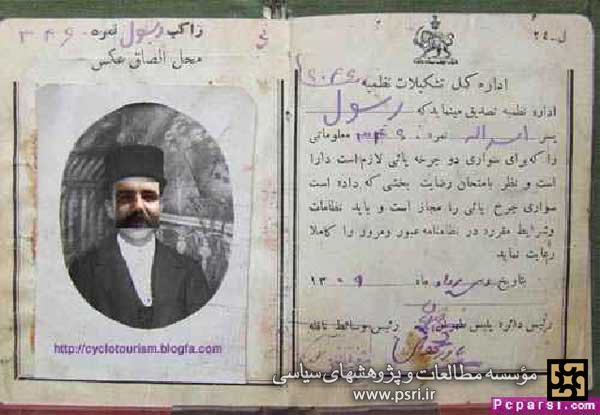 راکب رسول نمره ۳۴۶
محل الصاق عکس
http://cyclotourism.blogfa.com
ل-۲۴
اداره کل تشکیلات نظمیه
اداره نظمیه تصدیق مینماید که رسول
پسر اسداله نمره معلوماتی
را که برای سواری دو چرخه پائی لازم است دارا
است و نظر بامتحان رضایت بخشی که داده است
سواری چرخ پائی را مجاز است و باید نظامات
وشرایط مقرره در نظامنامه عبور ومرور را کاملا
رعایت نماید
بتاریخ ماه ۱۳۰۹
رئیس دائره پلیس طهران رئیس وسائط ناقله
مؤسسه مطالعات و پژوهشهای سیاسی
www.psri.ir
Pcparsi.com